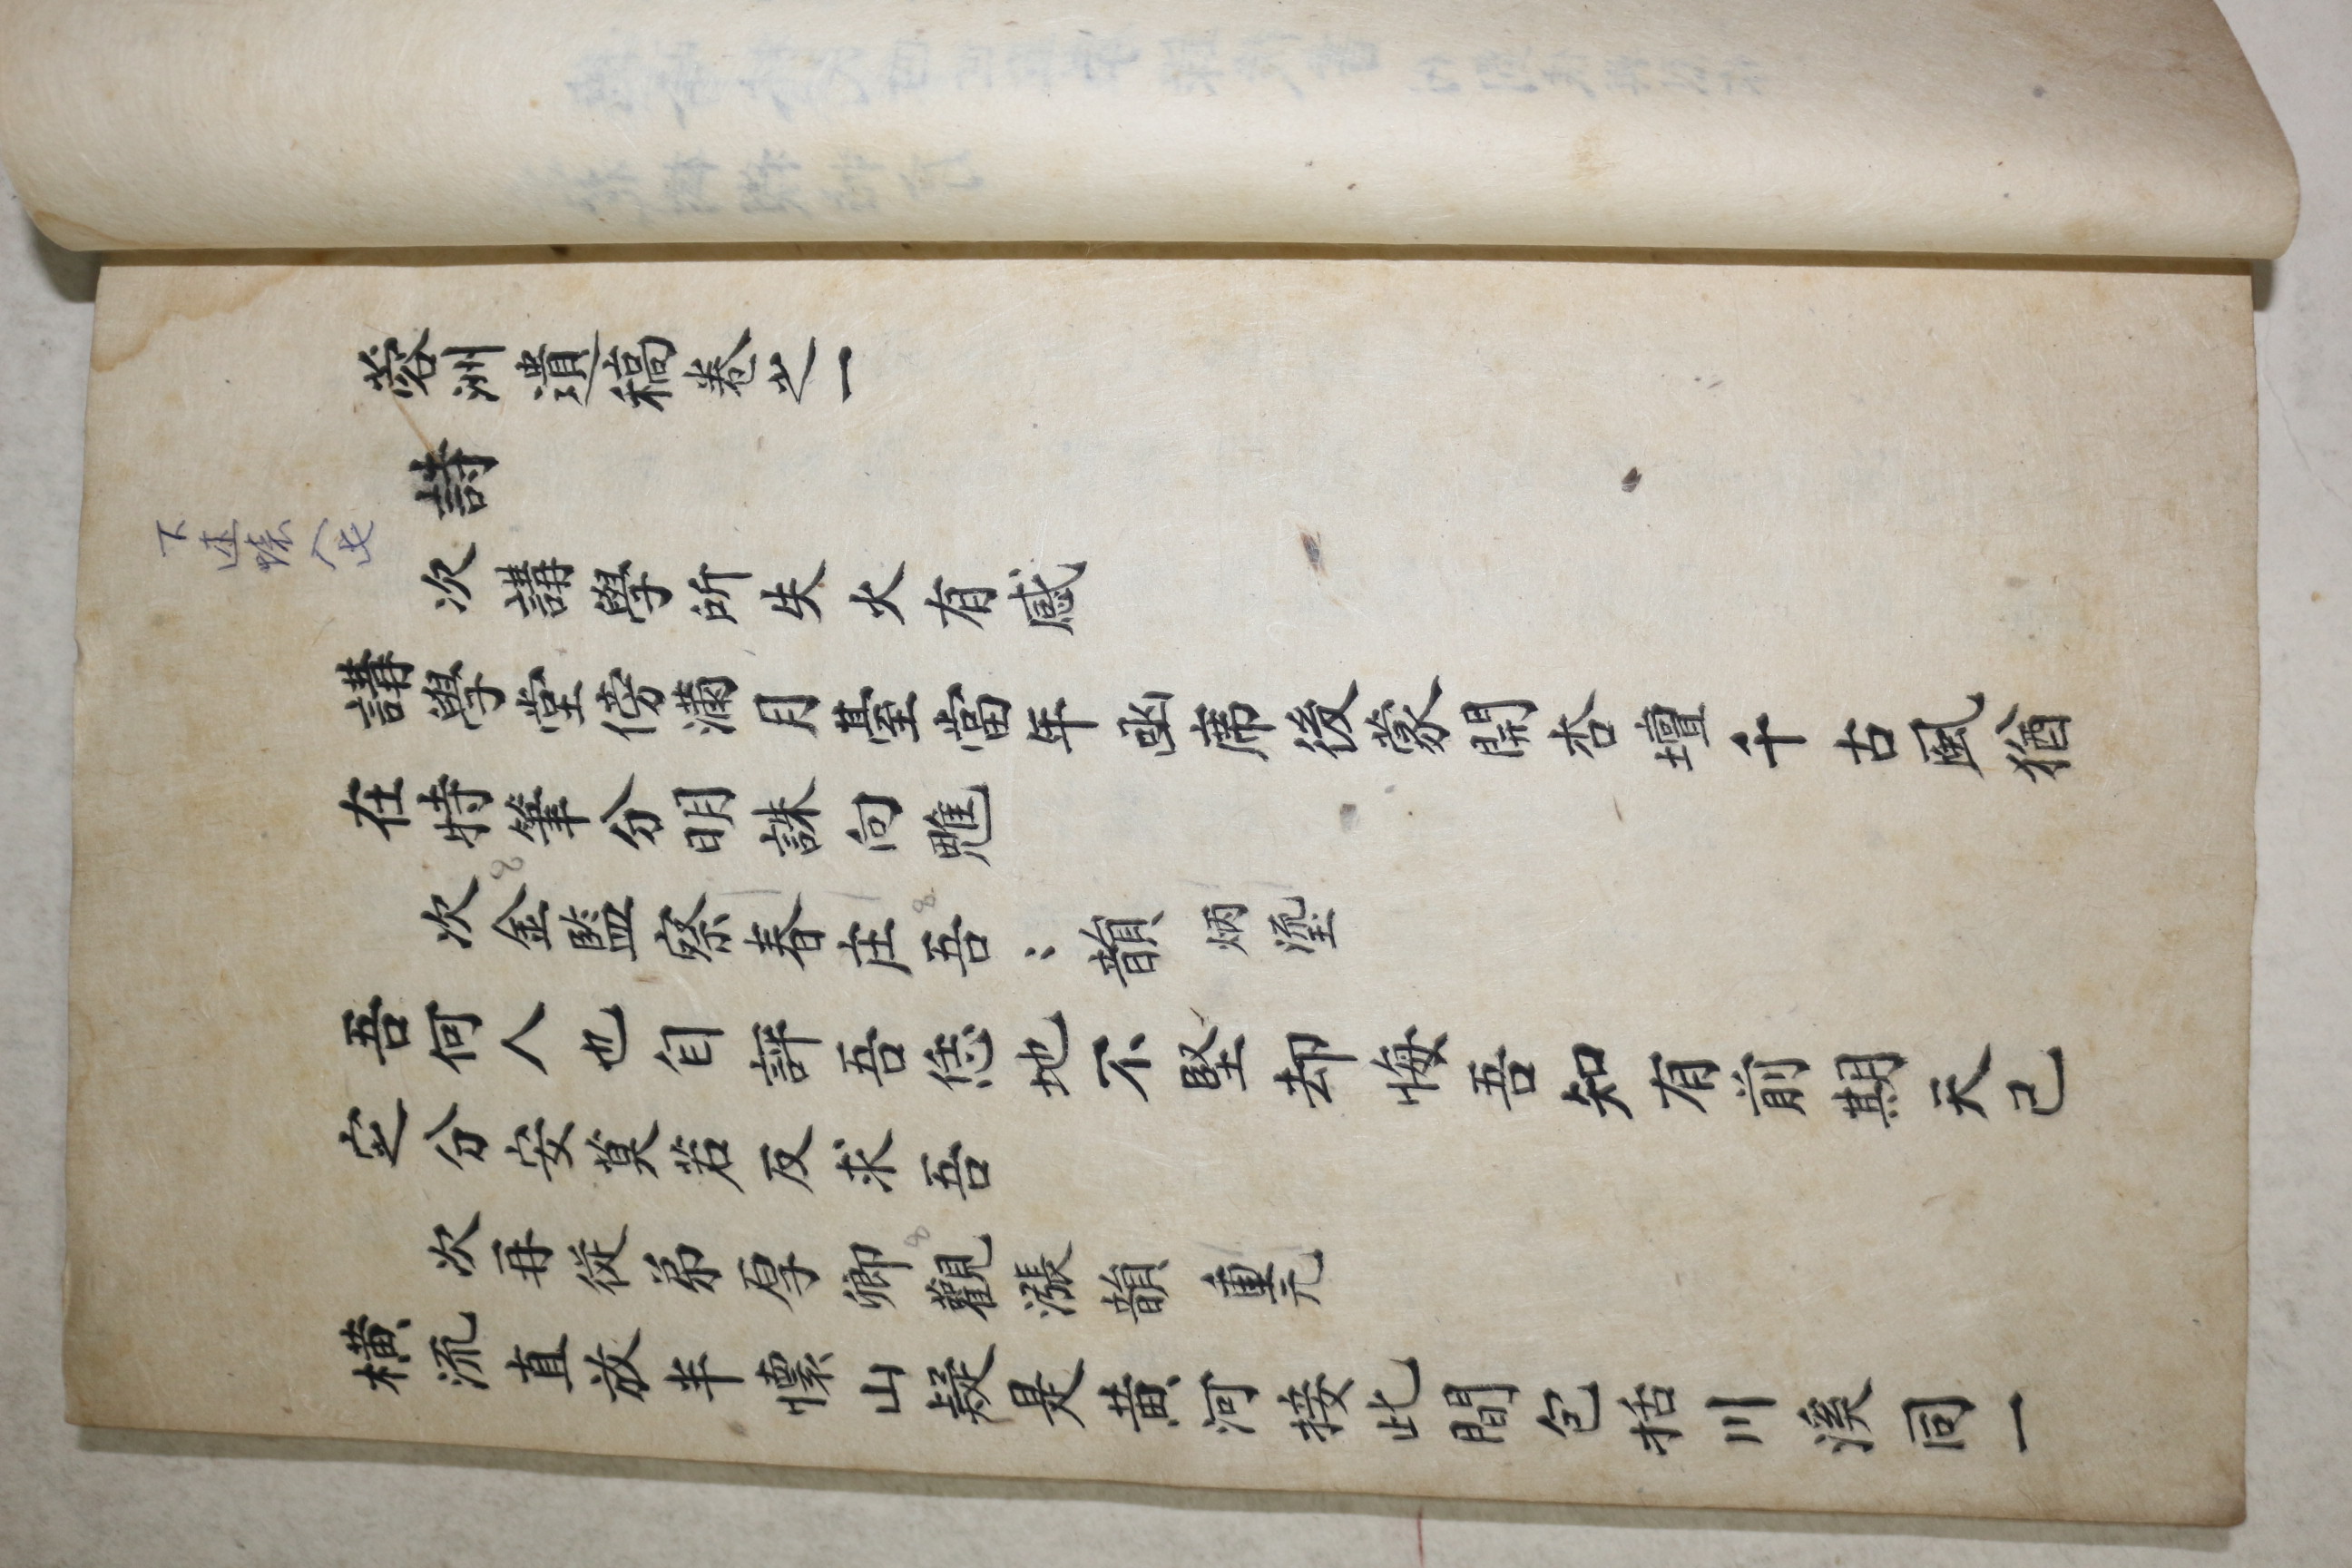 蓉洲遺稿卷之一
詩
下述懷入此
次講學所失火有感
講學堂傍滿月臺當年凾席後蒙開杏壇千古風猶
在特筆分明誅向魋
次金監察春庄吾〻韻 炳瀅
吾何人也自評吾恁地不堅却悔吾知有前期天已
定分安莫若反求吾
次再從弟厚卿觀漲韻 重元
橫流直放半懷山疑是黃河接此間包括川溪同一